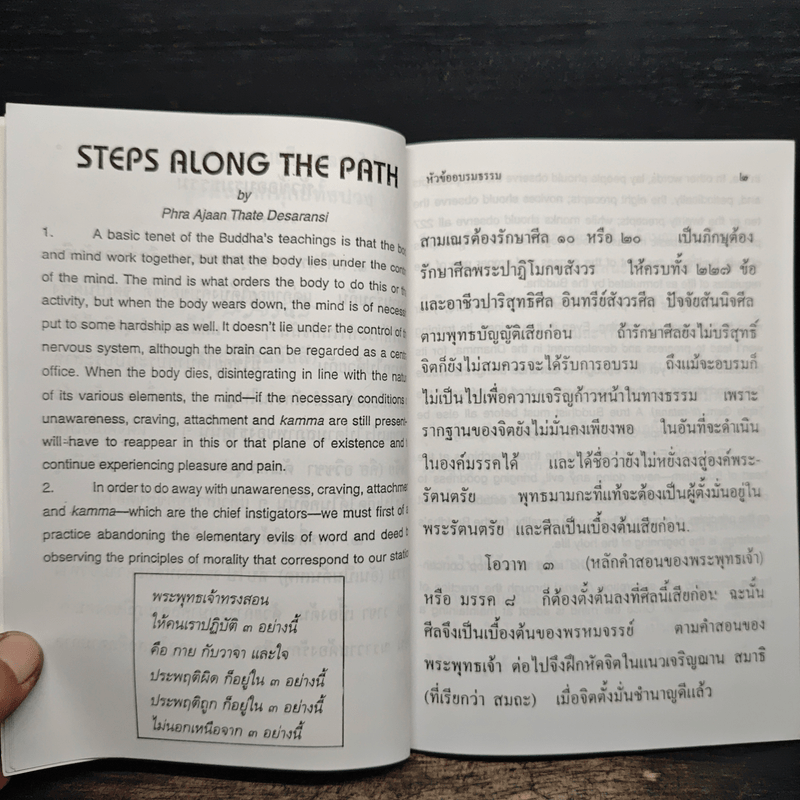 STEPS ALONG THE PATH
by
Phra Ajaan Thate Desaransi
1. A basic tenet of the Buddha's teachings is that the
and mind work together, but that the body lies under the
of the mind. The mind is what orders the body to do this or
activity, but when the body wears down, the mind is of
put to some hardship as well. It doesn't lie under the control of
nervous system, although the brain can be regarded as a
office. When the body dies, disintegrating in line with the
of its various elements, the mind—if the necessary conditions
unawareness, craving, attachment and kamma are still present—
will have to reappear in this or that plane of existence and
continue experiencing pleasure and pain.
2. In order to do away with unawareness, craving,
and kamma—which are the chief instigators—we must first of
practice abandoning the elementary evils of word and deed
observing the principles of morality that correspond to our
พระพุทธเจ้าทรงสอน
ให้คนเราปฏิบัติ ๓ อย่างนี้
คือ กาย กับวาจา และใจ
ประพฤติผิด ก็อยู่ใน ๓ อย่างนี้
ประพฤติถูก ก็อยู่ใน ๓ อย่างนี้
ไม่นอกเหนือจาก ๓ อย่างนี้
หัวข้ออบรมธรรม ๒
สามเณรต้องรักษาศีล ๑๐ หรือ ๒๐ เป็นภิกษุต้อง
รักษาศีลพระปาฏิโมกขสังวร ให้ครบทั้ง ๒๒๗ ข้อ
และอาชีวปาริสุทธิศีล อินทรีย์สังวรศีล ปัจจัยสันนิจศีล
ตามพุทธบัญญัติเสียก่อน ถ้ารักษาศีลยังไม่บริสุทธิ์
จิตก็ยังไม่สมควรจะได้รับการอบรม ถึงแม้จะอบรมก็
ไม่เป็นไปเพื่อความเจริญก้าวหน้าในทางธรรม เพราะ
รากฐานของจิตยังไม่มั่นคงเพียงพอ ในอันที่จะดำเนิน
ในองค์มรรคได้ และได้ชื่อว่ายังไม่หยั่งลงสู่องค์พระ-
รัตนตรัย พุทธมามกะที่แท้จะต้องเป็นผู้ตั้งมั่นอยู่ใน
พระรัตนตรัย และศีลเป็นเบื้องต้นเสียก่อน.
โอวาท ๓ (หลักคำสอนของพระพุทธเจ้า)
หรือ มรรค ๘ ก็ต้องตั้งต้นลงที่ศีลนี้เสียก่อน ฉะนั้น
ศีลจึงเป็นเบื้องต้นของพรหมจรรย์ ตามคำสอนของ
พระพุทธเจ้า ต่อไปจึงฝึกหัดจิตในแนวเจริญฌาน สมาธิ
(ที่เรียกว่า สมถะ) เมื่อจิตตั้งมั่นชำนาญดีแล้ว